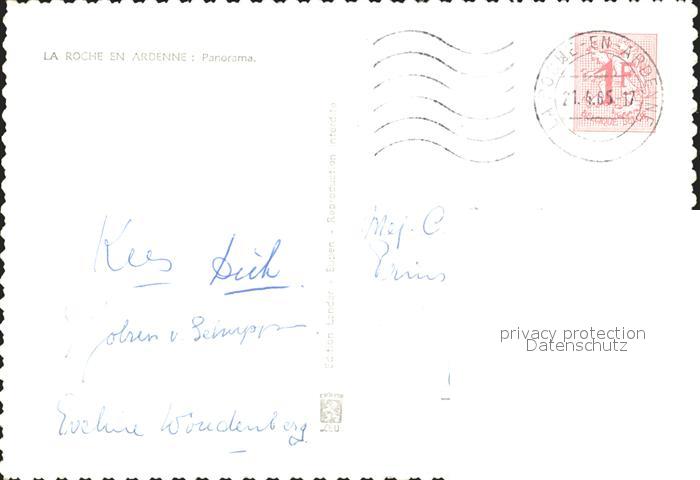 LA ROCHE EN ARDENNE : Panorama.
LA ROCHE-EN-ARDENNE
21.4.65 17
1F
BELGIQUE
Edition Lander - Eupen - Reproduction interdite
Mej. C
Prins
Kees Dick
v. Schuppen
Eveline Woudenberg
privacy protection
Datenschutz